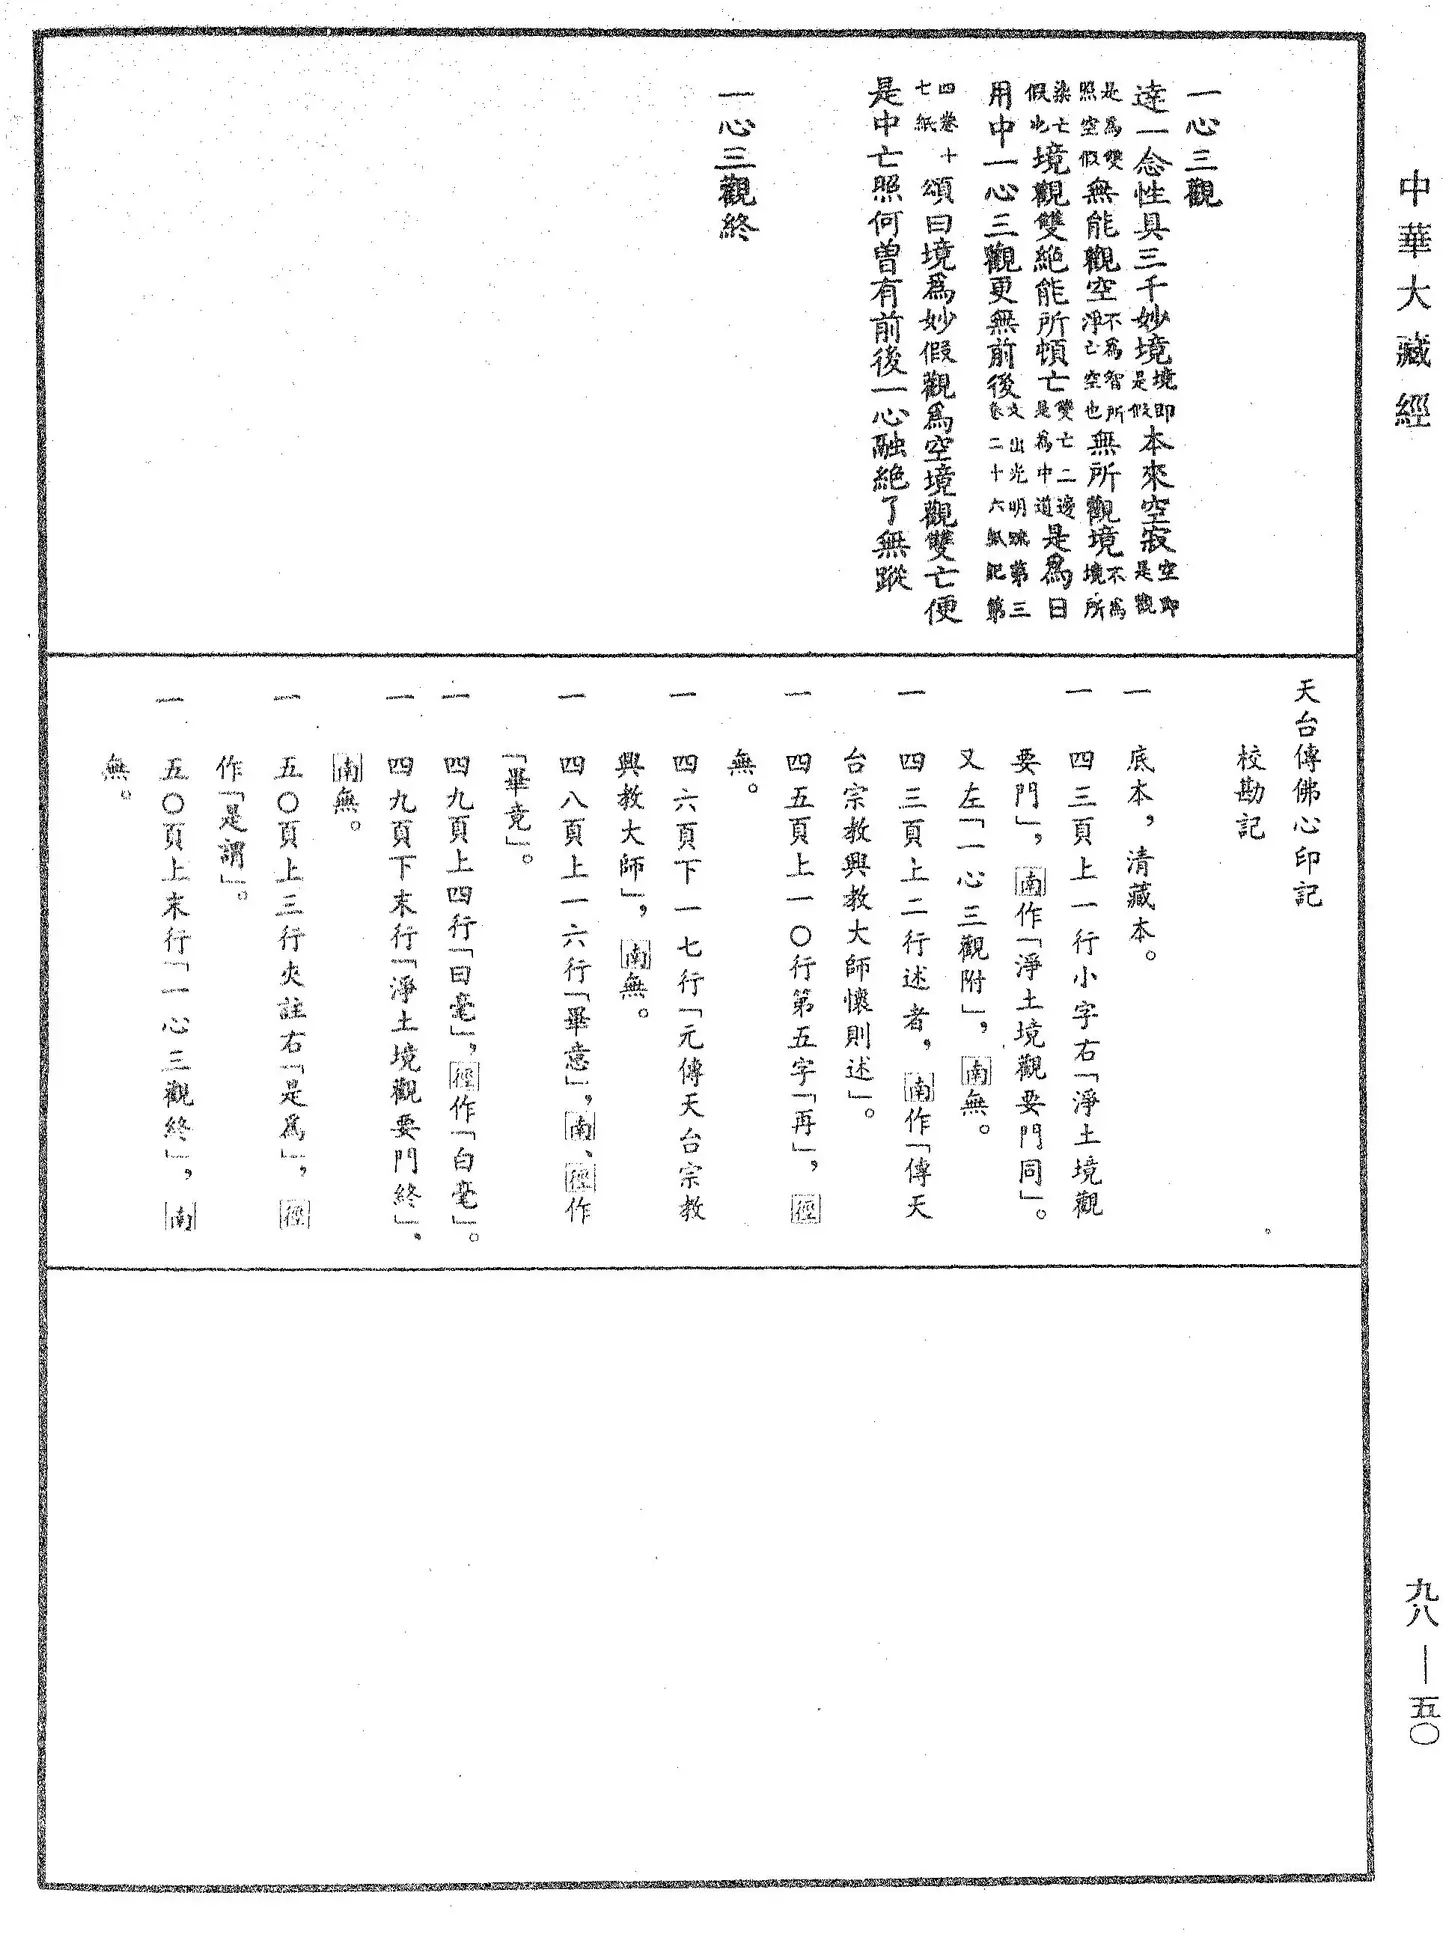 中華大藏經
一心三觀
達一念性具三千妙境境即是假本來空寂空即是觀
是爲雙照空假無能觀空不爲智所淨亡空也無所觀境不爲境所
染亡假也境觀雙絶能所頓亡雙亡二邊是爲中道是爲日
用中一心三觀更無前後文出光明疏第三卷二十六紙記第
四卷十七紙頌曰境爲妙假觀爲空境觀雙亡便
是中亡照何曾有前後一心融絶了無蹤
一心三觀終
天台傳佛心印記
校勘記
一　底本，清藏本。
一　四三頁上一行小字右「淨土境觀
要門」，南作「淨土境觀要門同」。
又左「一心三觀附」，南無。
一　四三頁上二行述者，南作「傳天
台宗教興教大師懷則述」。
一　四五頁上一〇行第五字「再」，徑
無。
一　四六頁下一七行「元傳天台宗教
興教大師」，南無。
一　四八頁上一六行「畢意」，南、徑作
「畢竟」。
一　四九頁上四行「曰毫」，徑作「白毫」。
一　四九頁下末行「淨土境觀要門終」，
南無。
一　五〇頁上三行夾註右「是爲」，徑
作「是謂」。
一　五〇頁上末行「一心三觀終」，南
無。
九八—五〇